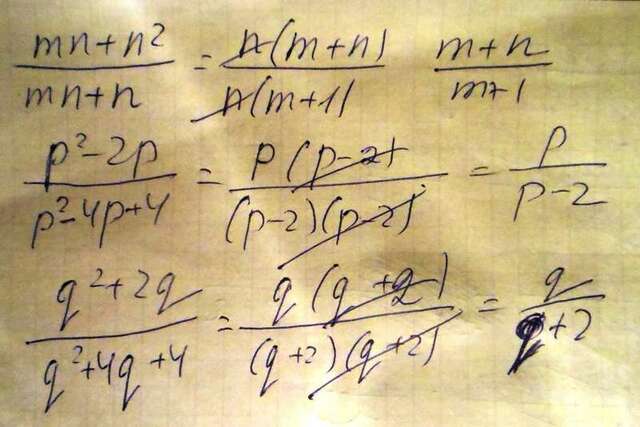 (mn+n²)/(mn+n) = n(m+n)/n(m+1) (m+n)/(m+1)
(p²-2p)/(p²-4p+4) = p(p-2)/(p-2)(p-2) = p/(p-2)
(q²+2q)/(q²+4q+4) = q(q+2)/(q+2)(q+2) = q/(q+2)